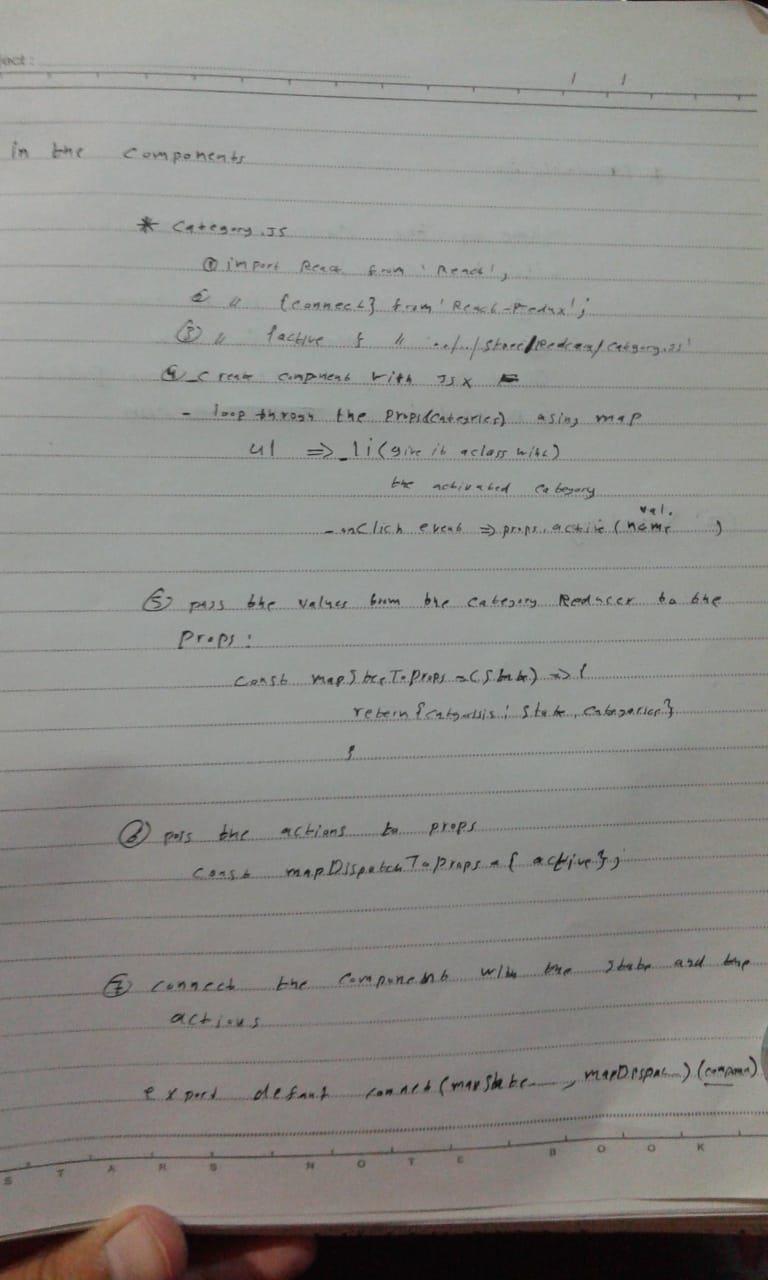 ject:
/ /
in the components
* Category.JS
① import React from 'React';
② " {connect} from 'React-Redux';
③ " {active } " '../../store/Reducers/Category.js'
④ - Create component with JSX
- loop through the props(Categories) using map
ul => li (give it a class with)
the activated category
val.
- onClick event => props.active (name )
⑤ pass the values from the category Reducer to the
props:
const mapStateToProps = (state) => {
return { : state.Categories}
}
⑥ pass the actions to props
const mapDispatchToProps = { active };
⑦ connect the component with the state and the
actions
export default connect(mapState......, mapDispat....) (compon)
STARS NOTE BOOK